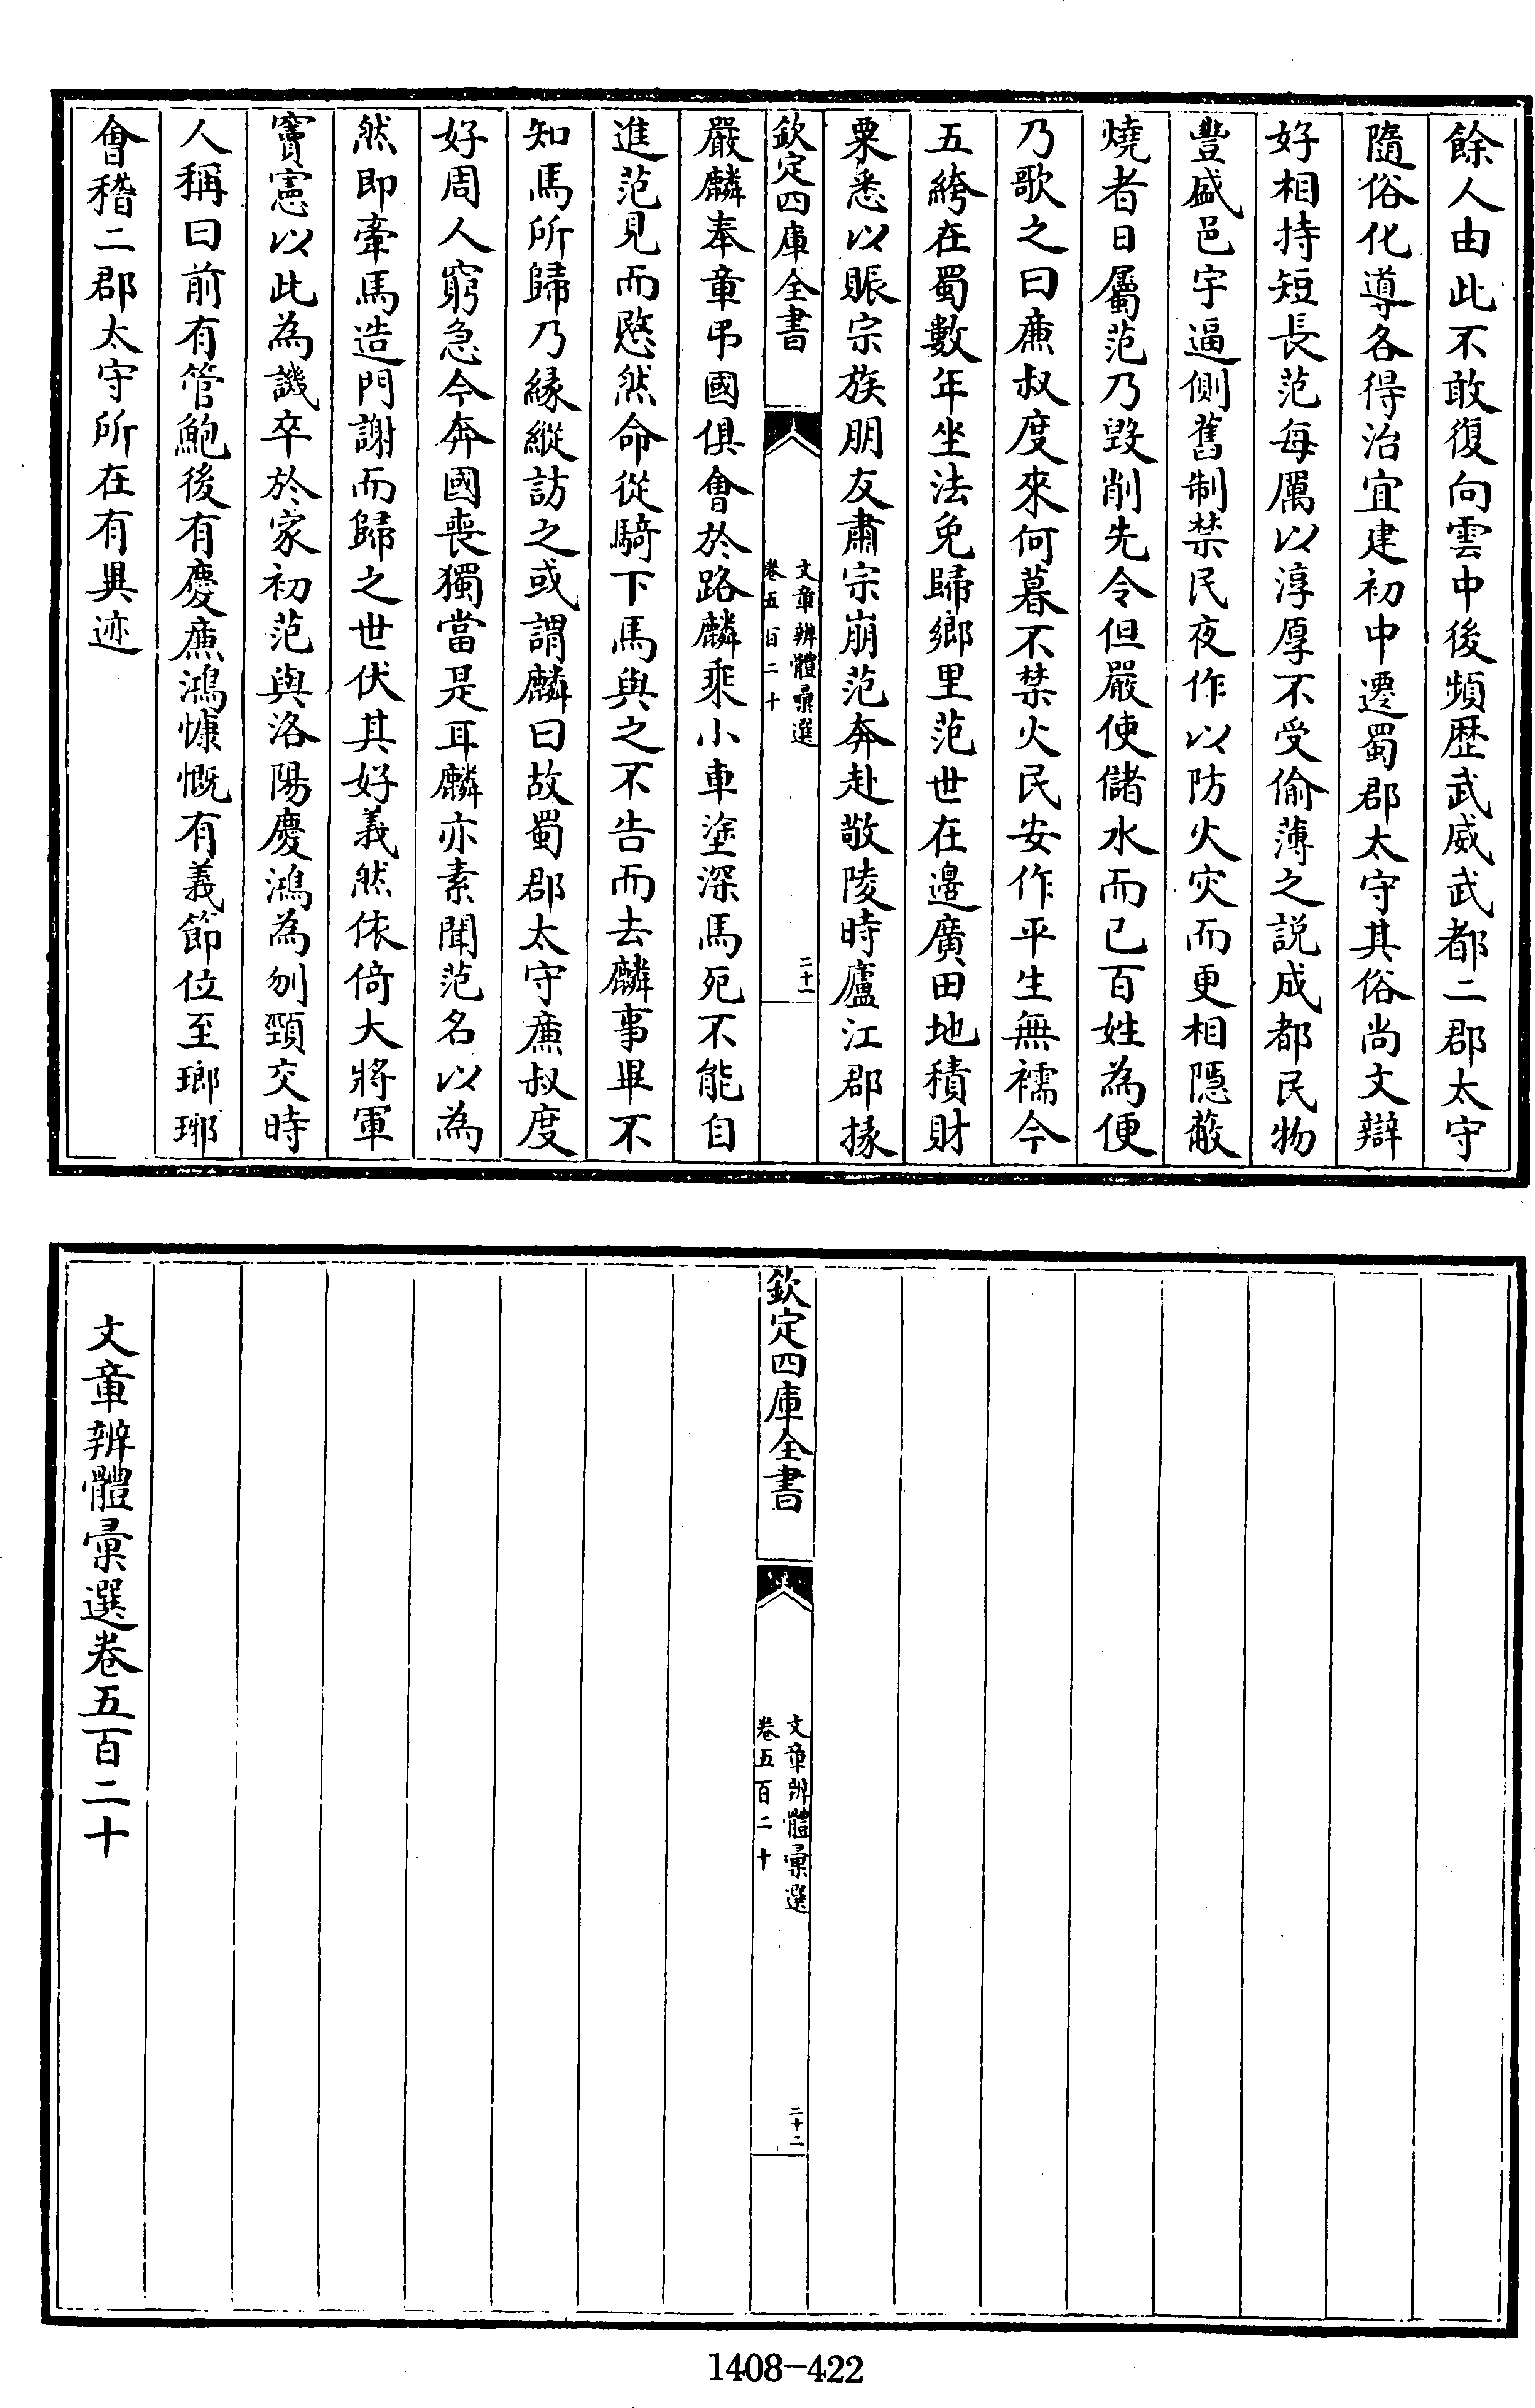 餘人由此不敢復向雲中後頻歴武威武都二郡太守
隨俗化導各得治宜建初中遷蜀郡太守其俗尚文辯
好相持短長范每厲以淳厚不受偷薄之説成都民物
豐盛邑宇逼側舊制禁民夜作以防火灾而更相隠蔽
燒者日屬范乃毁削先令但嚴使儲水而已百姓為便
乃歌之曰廉叔度來何暮不禁火民安作平生無襦今
五絝在蜀數年坐法免歸鄉里范世在邉廣田地積財
粟悉以賑宗族朋友肅宗崩范奔赴敬陵時廬江郡掾
欽定四庫全書
文章辨體彚選
卷五百二十
二十一
嚴麟奉章弔國俱會於路麟乘小車塗深馬死不能自
進范見而愍然命從騎下馬與之不告而去麟事畢不
知馬所歸乃縁縱訪之或謂麟曰故蜀郡太守廉叔度
好周人窮急今奔國喪獨當是耳麟亦素聞范名以為
然即牽馬造門謝而歸之世伏其好義然依倚大將軍
竇憲以此為譏卒於家初范與洛陽慶鴻為刎頸交時
人稱曰前有管鮑後有慶廉鴻慷慨有義節位至瑯琊
會稽二郡太守所在有異迹
欽定四庫全書
文章辨體彚選
卷五百二十
二十二
文章辨體彚選卷五百二十
1408-422